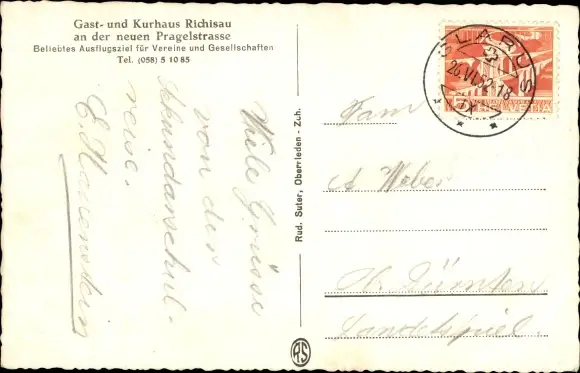 Gast- und Kurhaus Richisau
an der neuen Pragelstrasse
Beliebtes Ausflugsziel für Vereine und Gesellschaften
Tel. (058) 5 10 85
Viele Grüsse
von der
Sekundarschul-
reise.
E. Hauenstein
Rud. Suter, Oberrieden - Zch.
RS
GLARUS
26.VI.52-18
5
HELVETIA
Fam
A Weber
Dürnten